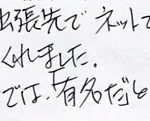 出張先でネットで
くれました。
では、「有名だと